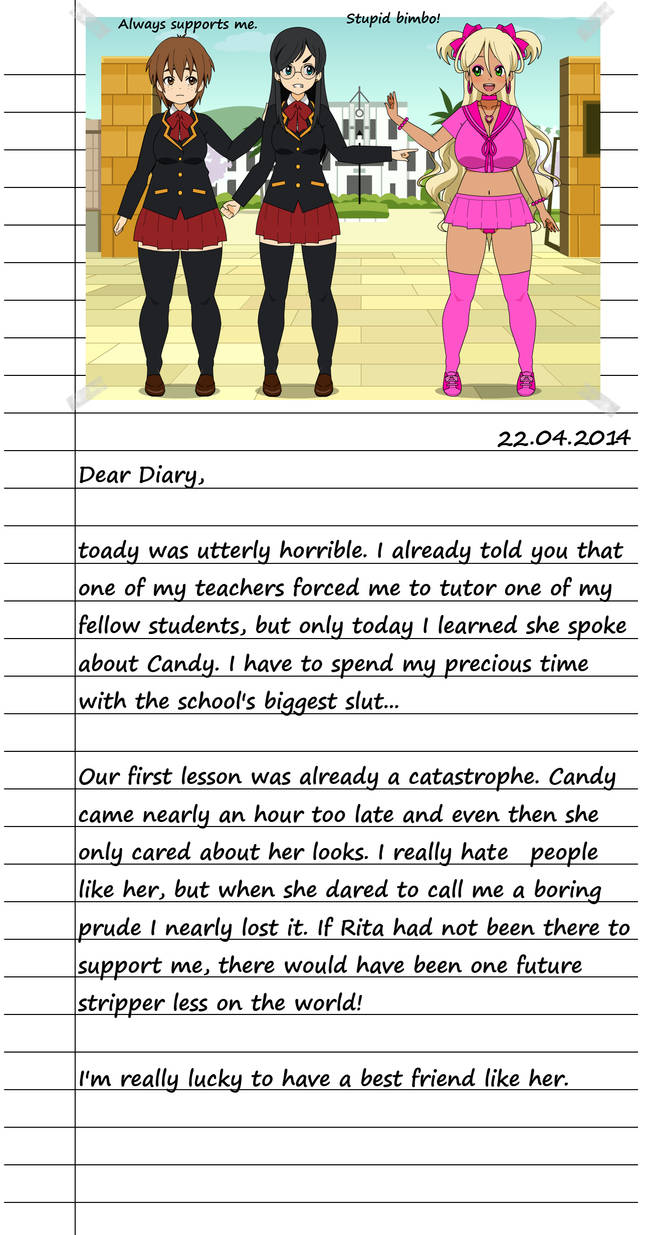 Always supports me.
Stupid bimbo!
22.04.2014
Dear Diary,
toady was utterly horrible. I already told you that
one of my teachers forced me to tutor one of my
fellow students, but only today I learned she spoke
about Candy. I have to spend my precious time
with the school's biggest slut...
Our first lesson was already a catastrophe. Candy
came nearly an hour too late and even then she
only cared about her looks. I really hate people
like her, but when she dared to call me a boring
prude I nearly lost it. If Rita had not been there to
support me, there would have been one future
stripper less on the world!
I'm really lucky to have a best friend like her.